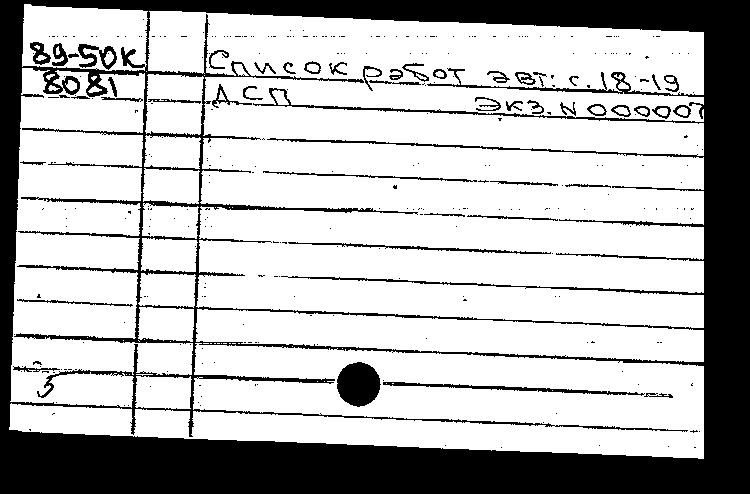 89-50К Список работ авт: с. 18-19
8081 ДСП Экз. N 000007
5